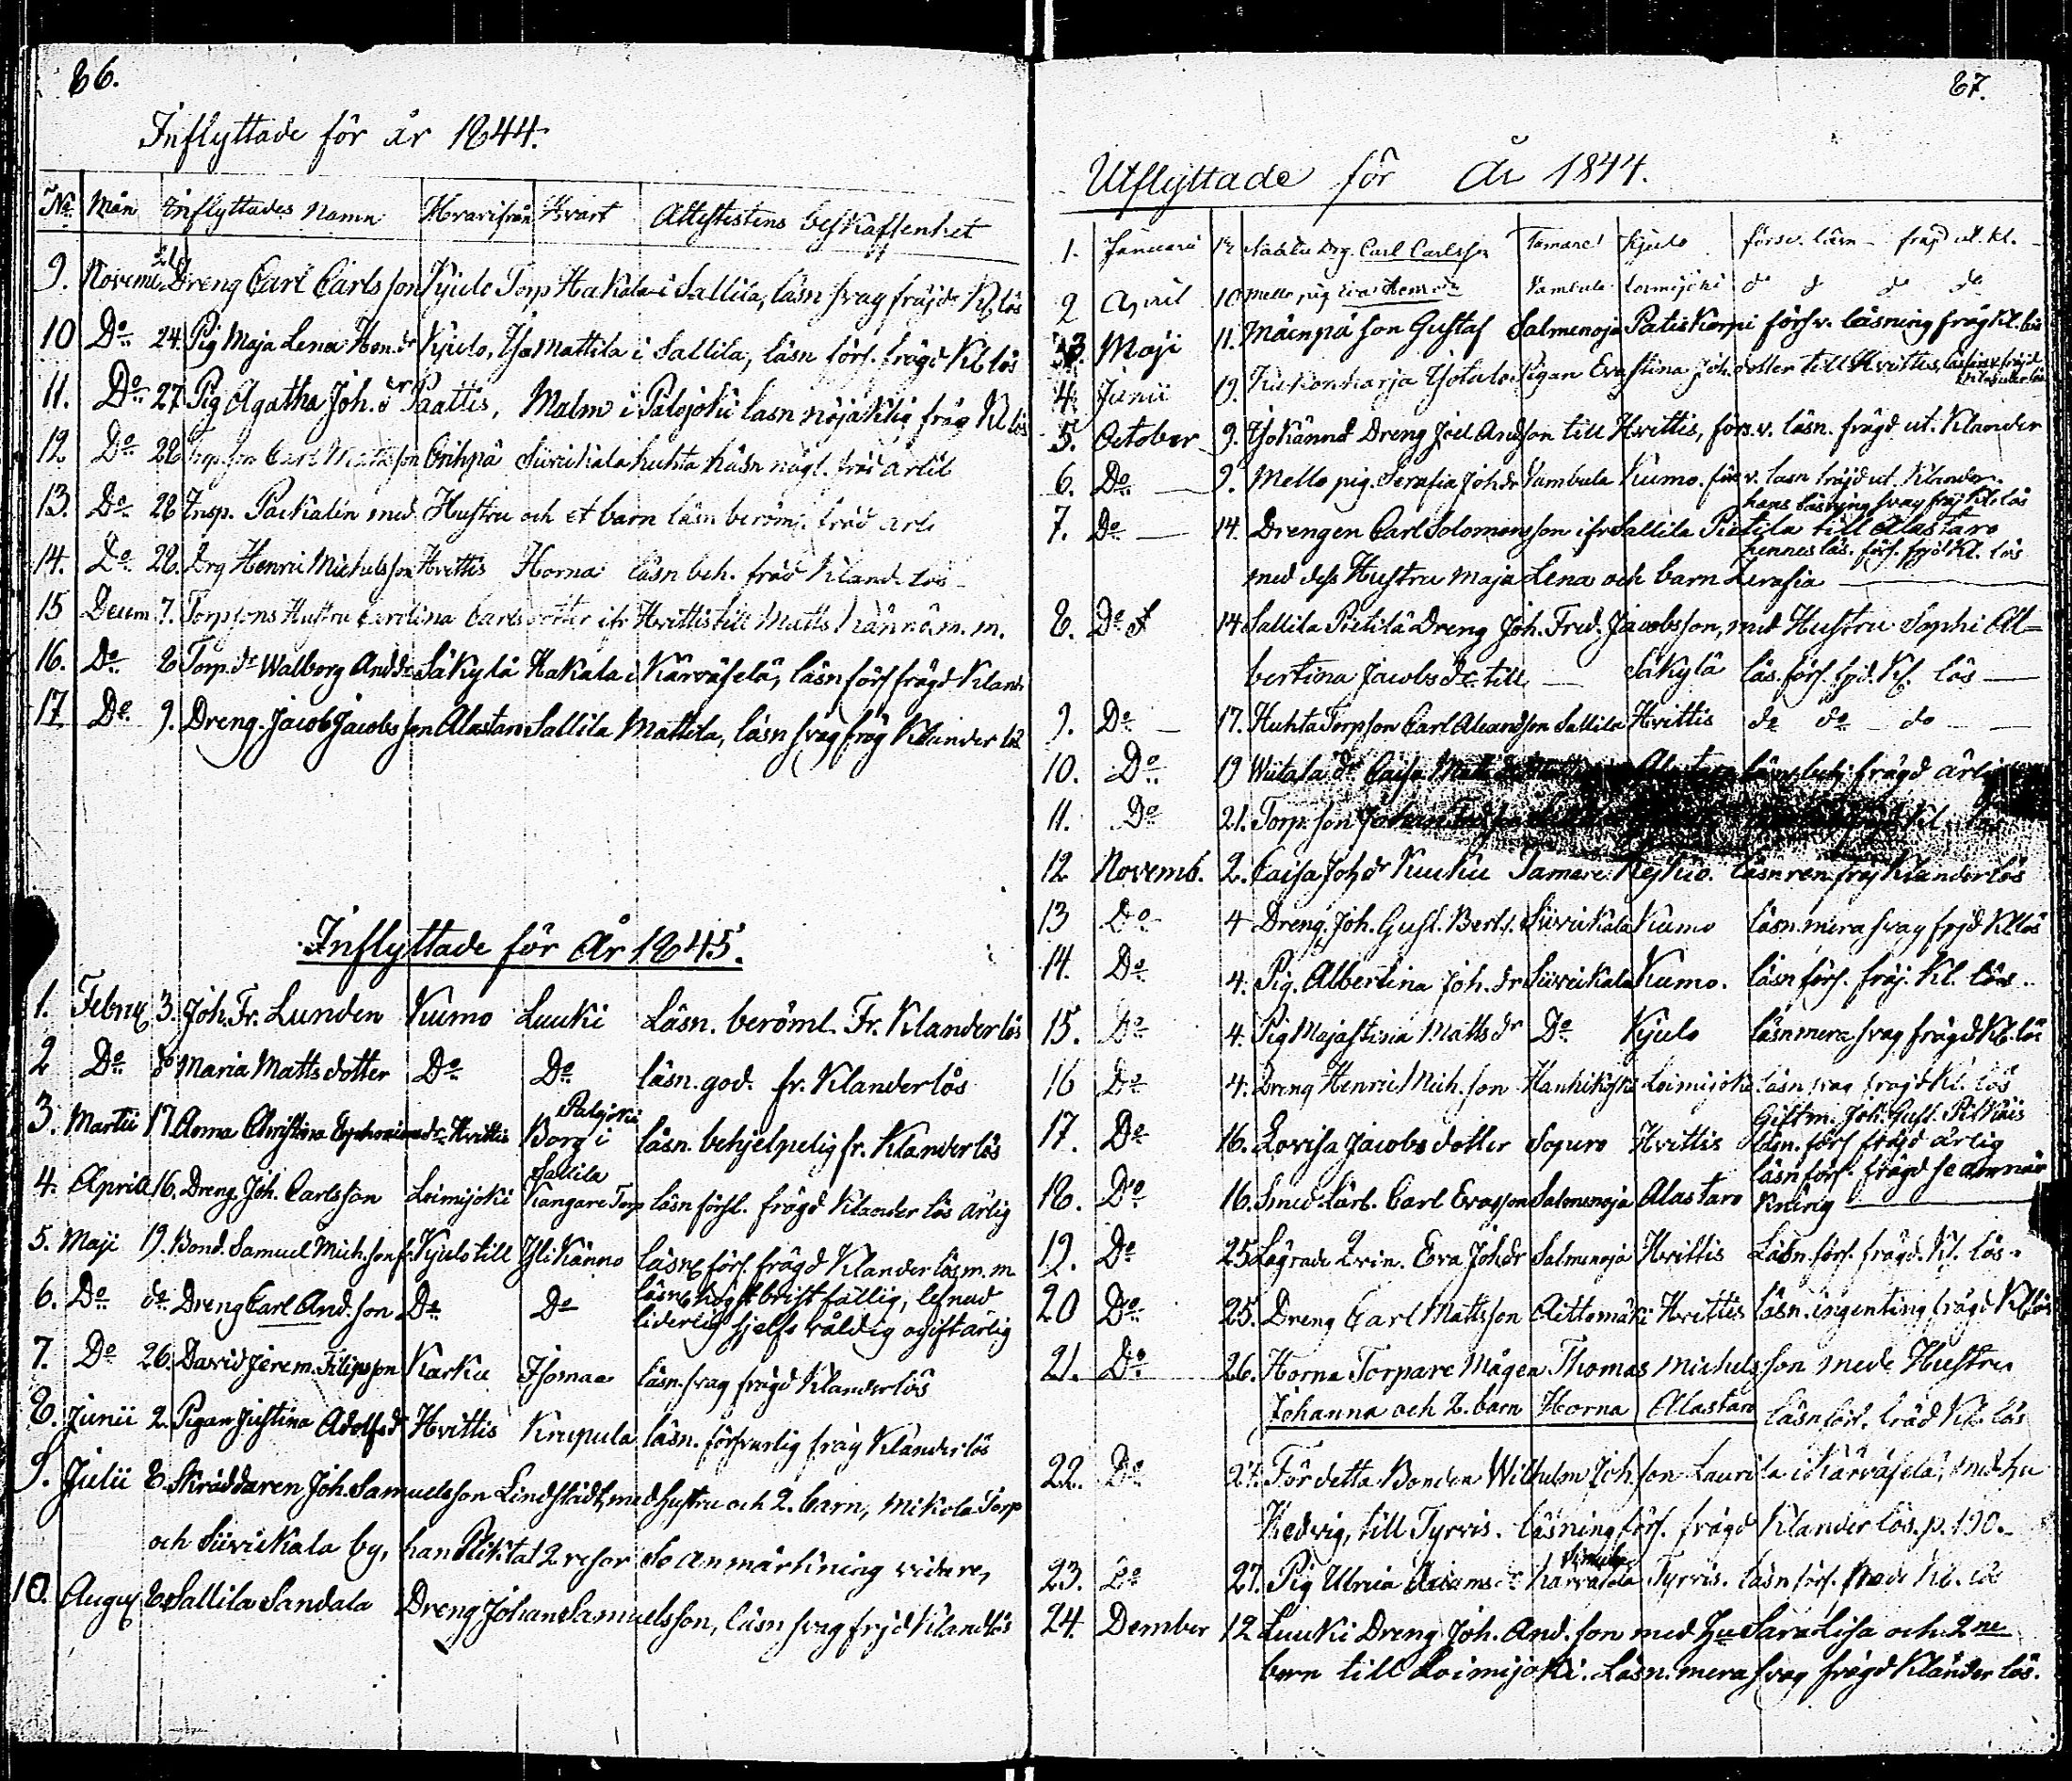 86.
Inflyttade för år 1844.
No. Mån Inflyttades Namn Hvarifrån Hvart Attestens beskaffenhet
9. Novemb. Dreng Carl Carlsson Kjulo Torp Hakala i Sallila, läsn svag fräjde Kl. lös
10 Do 24. Pig Maja Lena Hen.dr Kjulo, Mattila i Sallila, läsn förs. frägd Kl lös
11. Do 27 Pig Agatha Joh. dr Paattis, Malm i Palojoki läsn nöjaktig fräg Kl lös
12 Do 28 Carl Mattsson Suurikala huhta läsn nögl. fräd ärlil
13. Do 28 Insp. Packalin med Hustru och et barn läsn beröml. fräd ärli
14. Do 28. Drg Henric Michelsson Hvittis Horna läsn beh. fräd Kland. lös
15 Decem 7. Torpsons Hustru Carolina Carlsdotter ifr Hvittis till Matts Kännö m. m.
16. Do 8 Torp. dr Walborg And.dr Säkylä Hakala i Kärväselä, läsn förs frägd Kland
17 Do 9. Dreng. Jacob Jacobsson Alastaro Sallila Mattila, läsn svag fräg Klander lös
Inflyttade för År 1845.
1. Febru 3. Joh. Fr. Lunden Kumo Luuki Läsn. beröml. Fr. Klanderlös
2 Do do Maria Matts dotter Do Do läsn. god. fr. Klanderlös
3. Martii 17. Anna Christina Hvittis Borg i Palojoki läsn. behjelpelig fr. Klanderlös
4. April 16. Dreng Joh. Carlsson Loimijoki Sallila Kangare Torp läsn förs. frägd Klander lös ärlig
5. Maji 19. Bond. Samuel Mich.son fr. Kjulo till Yli Känno läsn förs. frägd Klander lös m. m
6. Do do. Dreng Carl And.son Do Do läsn högst brist fällig, lefnad
liderlig sjelfs våldig ogift ärlig
7. Do 26. David Jerem. Filipsson Karku Isomaa läsn. svag frägd Klanderlös
8. Junii 2. Pigan Justina Adolfsdr Hvittis Krupula läsn. försvarlig fräg Klanderlös
9. Julii 8. Skräddaren Joh. Samuelsson Lindstädt, med hustru och 2. barn, Mikola Torp
och Suurikala by, han Pliktat 2 resor se anmärkning vidare,
10. Augu 8. Sallila Sandala Dreng Johan Samuelsson, läsn svag frjd Klandlös
87.
Utflyttade för År 1844.
1. Januarii Drg. Carl Carlsson Tamare Kjulo försv. läsn fräjd ut. Kl.
2 April 10 Mello pig Eva Henr.dr Vambula Loimijoki do do do do
3. Maji 11. Mäenpä son Gustaf Salmenoja Patiskorpi försv. läsning fräg Kl. lös
4. Junii 19. Kukonharja Ysotalo Pigan Eva Stina Joh. dotter till Hvittis,
5. October 9. Dreng Joel Andsson till Hvittis, förs.v. läsn. frägd ut. Klander
6. Do 9. Mello pig. Serafia Joh.dr Vambula Kumo. för v. läsn fräjd ut. Klander.
hans läsning svag fräj Kl lös
7. Do 14. Drengen Carl Solomonsson ifr Sallila Pietila till Alastaro
hennes läs. förs. frjd Kl. lös
med dess Hustru Maja Lena och barn Serafia
8. Do 14 Sallila Pietilä Dreng Joh. Fred. Jacobsson, med Hustru Sophi Al-
bertina Jacobs dr. till Säkylä läs. förs. frjd. Kl. lös
9. Do 17. Huhta Torp son Carl Sallila Hvittis do do do
10. Do 19 Wiitala dr Caisa Matts Alastaro läsn behj. frägd ärlig
11. Do 21. Torp. son
12 Novemb. 2. Caisa Joh.dr Kuuku Tamare läsn ren fräj Klanderlös
13 Do 4 Dreng. Joh. Gust. Bert.s. Suurikala Kumo läsn. mera svag frjd Kl lös
14. Do 4. Pig. Albertina Joh. dr Suurikala Kumo. läsn förs. fräj. Kl. lös
15. Do 4. Pig Maja Stina Matts dr Do Kjulo läsn mera svag frägd Kl. lös
16 Do 4. Dreng Henric Mich. son Loimijoki läsn svag frägd Kl. lös
Gift m. Joh. Gust.
17. Do 16. Lovisa Jacobs dotter Sopuro Hvittis läsn. förs frägd ärlig
18. Do 16. Smed Lärl. Carl Erasson Salmenoja Alastaro läsn förs. frägd se anmär
kning
19. Do 25 Lägrade Qvin. Eva Joh.dr Salmenoja Hvittis Läsn. förs. frägd. Kl. lös.
20 Do 25. Dreng Carl Mattsson Aittomäki Hvittis läsn. ingenting frägd Kl lös
21. Do 26. Horna Torpare Mågen Thomas Michelsson med Hustru
Johanna och 2. barn Horna Alastaro läsn förs. fräd Kl. lös
22. Do 27. För detta Bonden Wilhelm Joh. son Laurila i Kärväselä, med hu
Hedvig, till Tyrvis. läsning förs. frägd Klander lös. p. 190.
23. Do 27. Pig Ulrica Adams dr Kärväselä Simula Tyrvis. läsn förs. fräd Kl. lös
24. Dember 12 Luuki Dreng Joh. And. son med Hu Sara Lisa och 2ne
barn till Loimijoki. Läsn. mera svag frägd Klander lös.